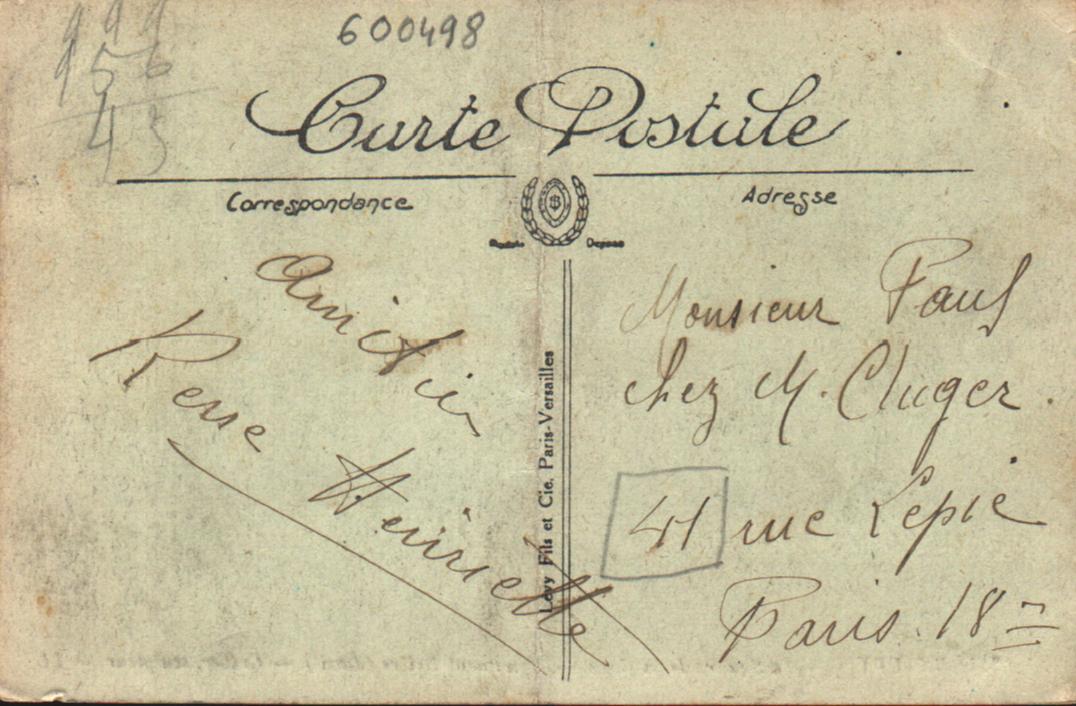 999
156
43
600498
Carte Postale
Correspondance
Adresse
Modèle Déposé
Amitiés
Rene Henriette
Levy Fils et Cie, Paris-Versailles
Monsieur Paul
chez M. Cluger
41 rue Lepic
Paris. 18